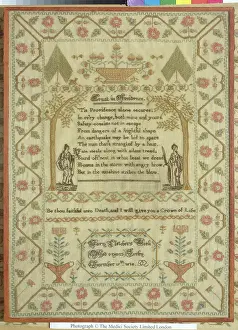 Trust in Providence.
'Tis Providence alone secures,
In ev'ry change, both mine and your's
Safety consists not in escape
From dangers of a frightful shape
An earthquake may be bid to spare
The man that's strangled by a hair.
Fate steals along with silent tread,
Found oft'nest in what least we dread
Frowns in the storm with angry brow
But in the sunshine strikes the blow.
Be thou faithful unto Death, and I will give you a Crown of Life
Work
Photograph © The Medici Society Limited London